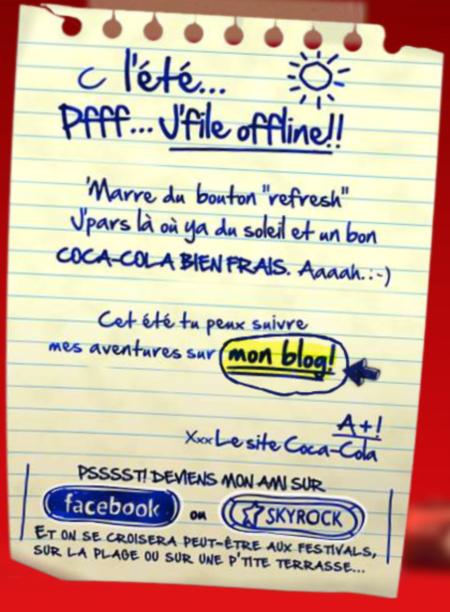 c l'été...
Pfff... J'file offline!!
'Marre du bouton "refresh"
J'pars là où ya du soleil et un bon
COCA-COLA BIEN FRAIS. Aaaah.:-)
Cet été tu peux suivre
mes aventures sur mon blog!
A+!
Xxx Le site Coca-Cola
PSSSST! DEVIENS MON AMI SUR
facebook ou SKYROCK
ET ON SE CROISERA PEUT-ÊTRE AUX FESTIVALS,
SUR LA PLAGE OU SUR UNE P'TITE TERRASSE...